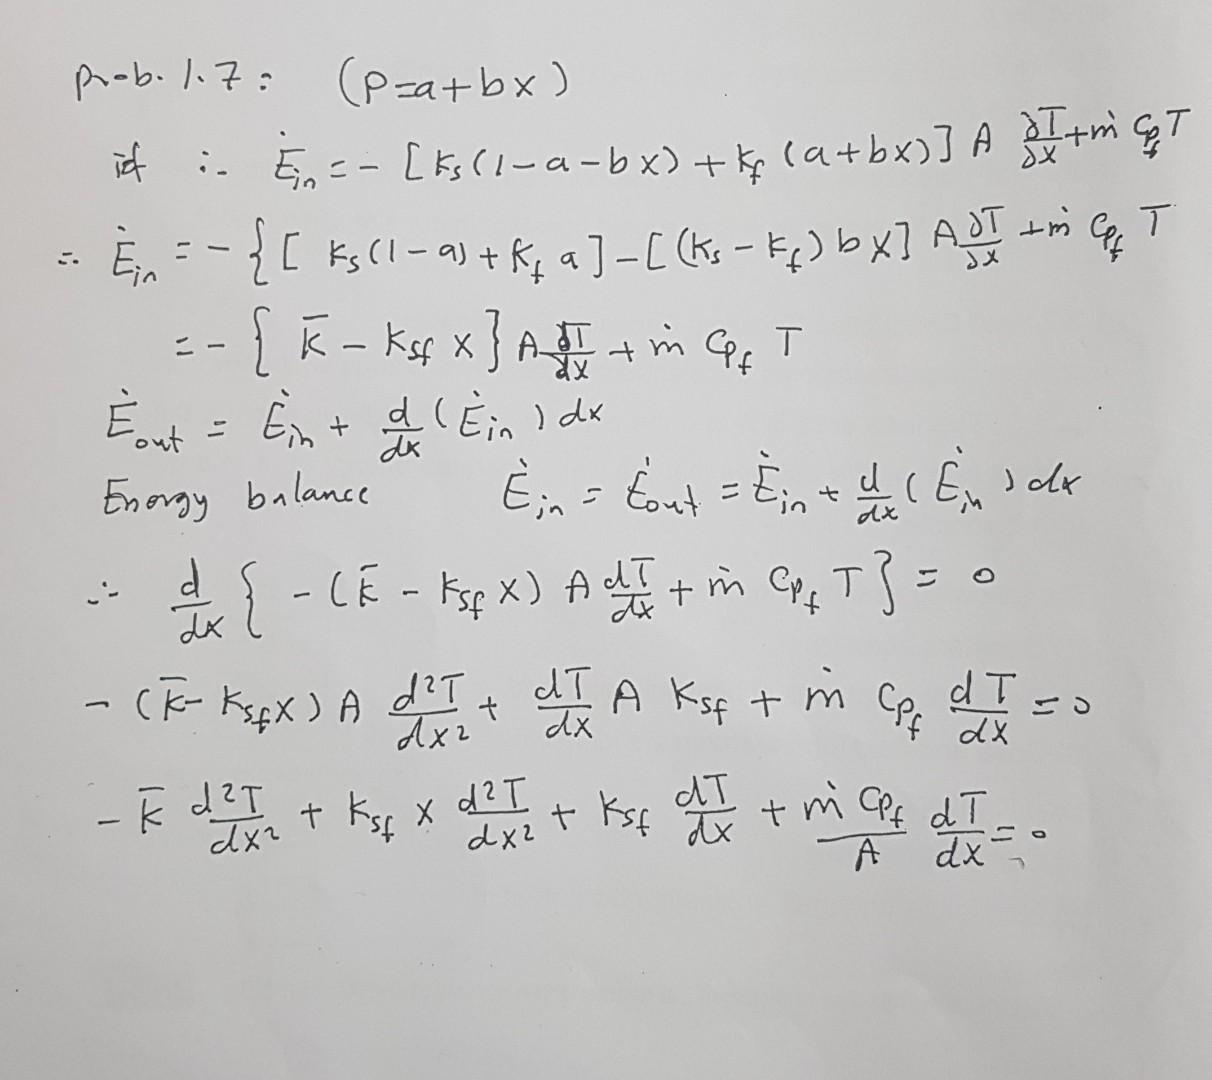 Prob. 1.7: (P=a+bx)
if ∴ Ė_in = - [k_s(1-a-bx) + k_f (a+bx)] A ∂T/∂x + ṁ C_pf T
∴ Ė_in = - { [ k_s(1-a) + k_f a] - [(k_s - k_f) b x] A ∂T/∂x + ṁ C_pf T
= - { k̄ - k_sf x } A dT/dx + ṁ C_pf T
Ė_out = Ė_in + d/dx (Ė_in) dx
Energy balance Ė_in = Ė_out = Ė_in + d/dx (Ė_in) dx
∴ d/dx { - (k̄ - k_sf x) A dT/dx + ṁ C_pf T } = 0
- (k̄ - k_sf x) A d²T/dx² + dT/dx A k_sf + ṁ C_pf dT/dx = 0
- k̄ d²T/dx² + k_sf x d²T/dx² + k_sf dT/dx + ṁ C_pf/A dT/dx = 0